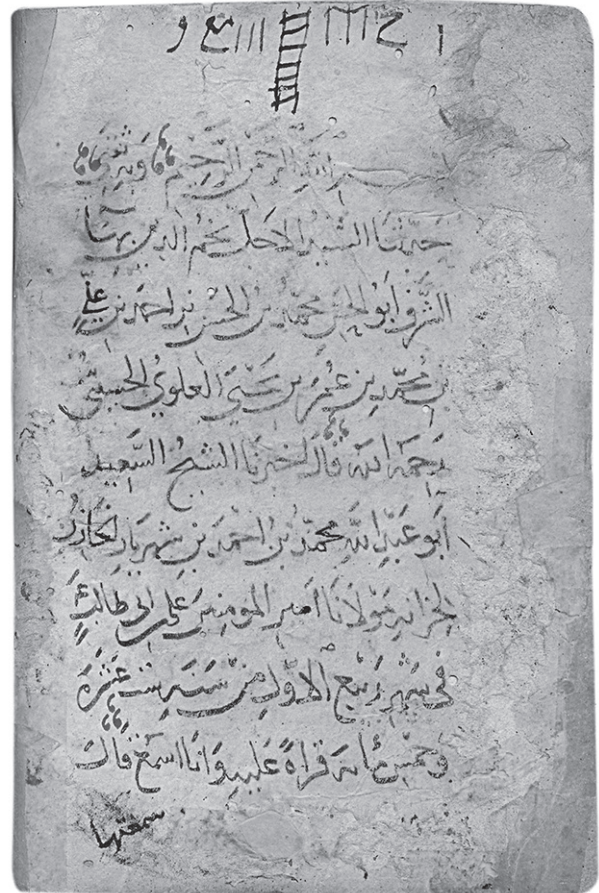 بسم الله الرحمن الرحيم وبه ثقتي
حدثنا السيد الاجل نجم الدين بهآ
الشرف ابو الحسن محمد بن الحسن بن احمد بن علي
بن محمد بن عمر بن يحيى العلوي الحسيني
رحمه الله قال اخبرنا الشيخ السعيد
ابو عبد الله محمد بن احمد بن شهريار الخازن
لخزانه مولانا امير المومنين علي بن ابي طالب ع
في شهر ربيع الاول من سنه ست عشره
وخمس مائه قراة عليه وانا اسمع قال
سمعتها